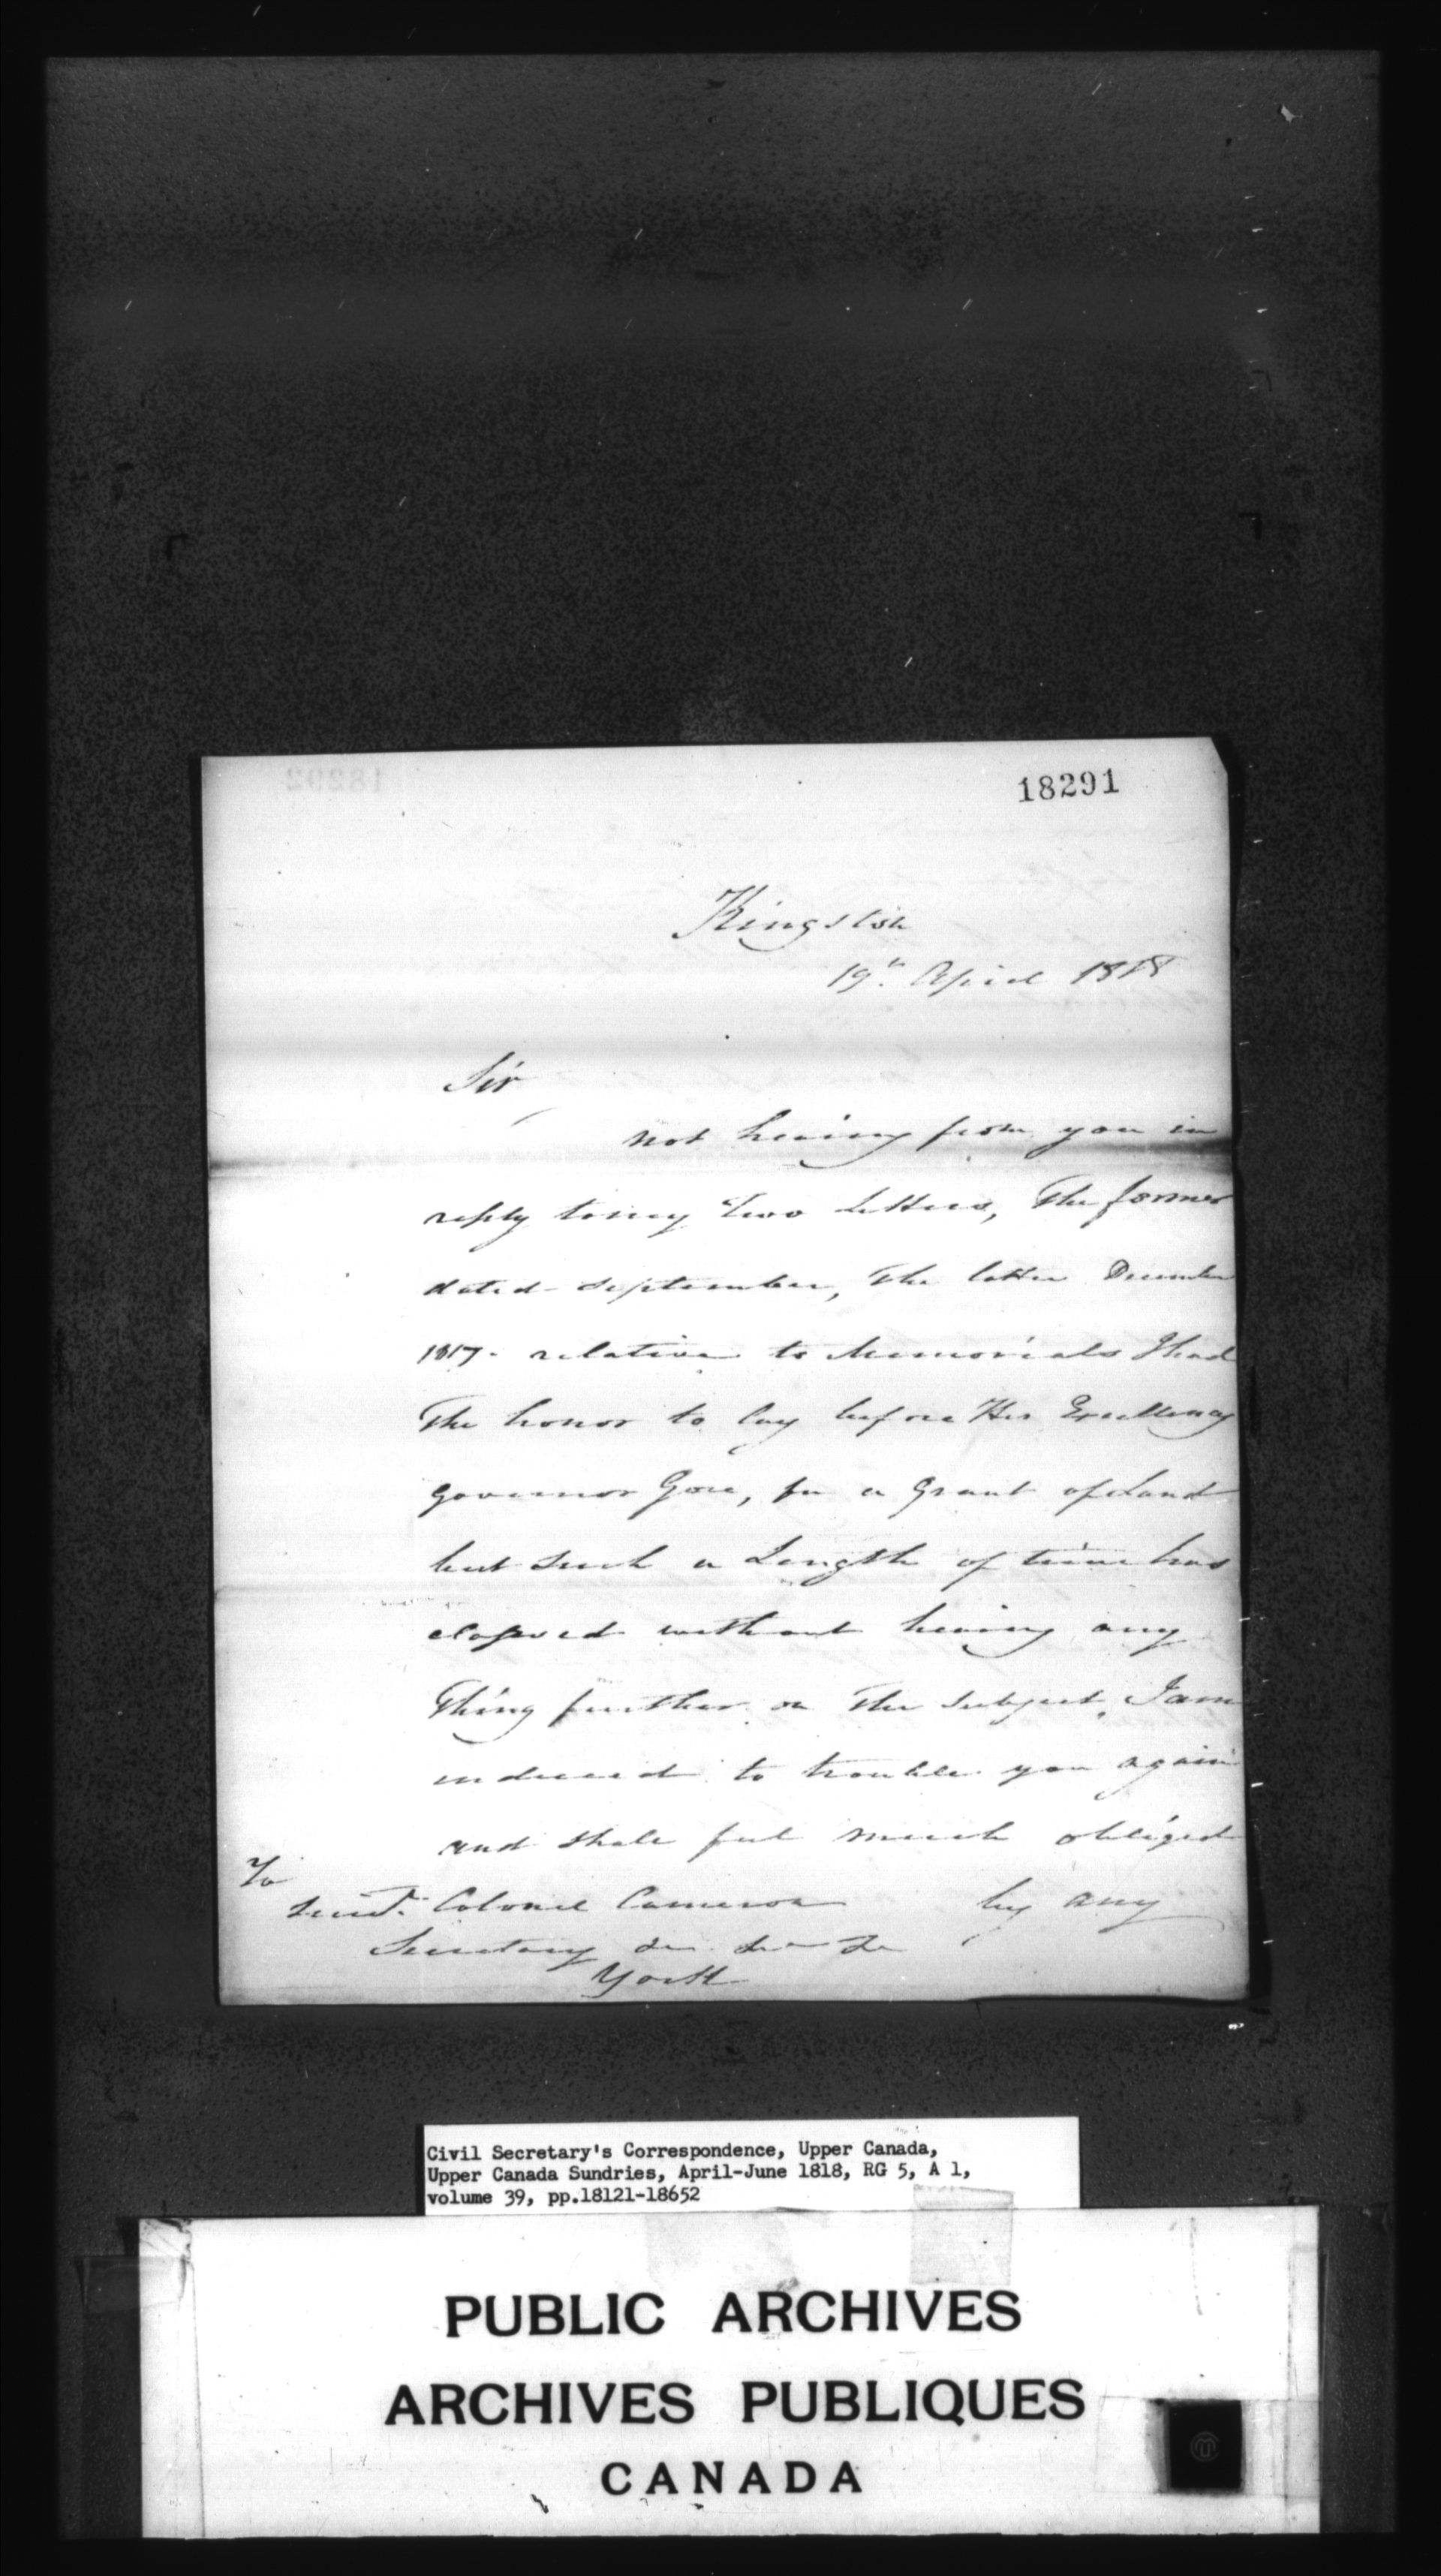 18291
Kingston
19th April 1818
Sir
not hearing from you in
reply to my Two Letters, The former
dated September, The latter December
1817. relative to Memorials I had
The honor to lay before His Excellency
Governor Gore, for a Grant of Land
but Such a Length of time has
elapsed without hearing any
Thing further on The Subject, I am
induced to trouble you again
and shall feel much obliged
by any
To
Lieut. Colonel Cameron
Secretary &c. &c. &c.
York
Civil Secretary's Correspondence, Upper Canada,
Upper Canada Sundries, April-June 1818, RG 5, A 1,
volume 39, pp.18121-18652
PUBLIC ARCHIVES
ARCHIVES PUBLIQUES
CANADA